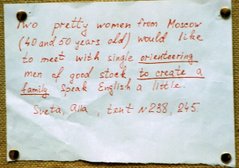 Two pretty women from Moscow
(40 and 50 years old) would like
to meet with single orienteering
men of good stock to create a
family. Speak English a little.
Sveta, Alla, tent N 238, 245